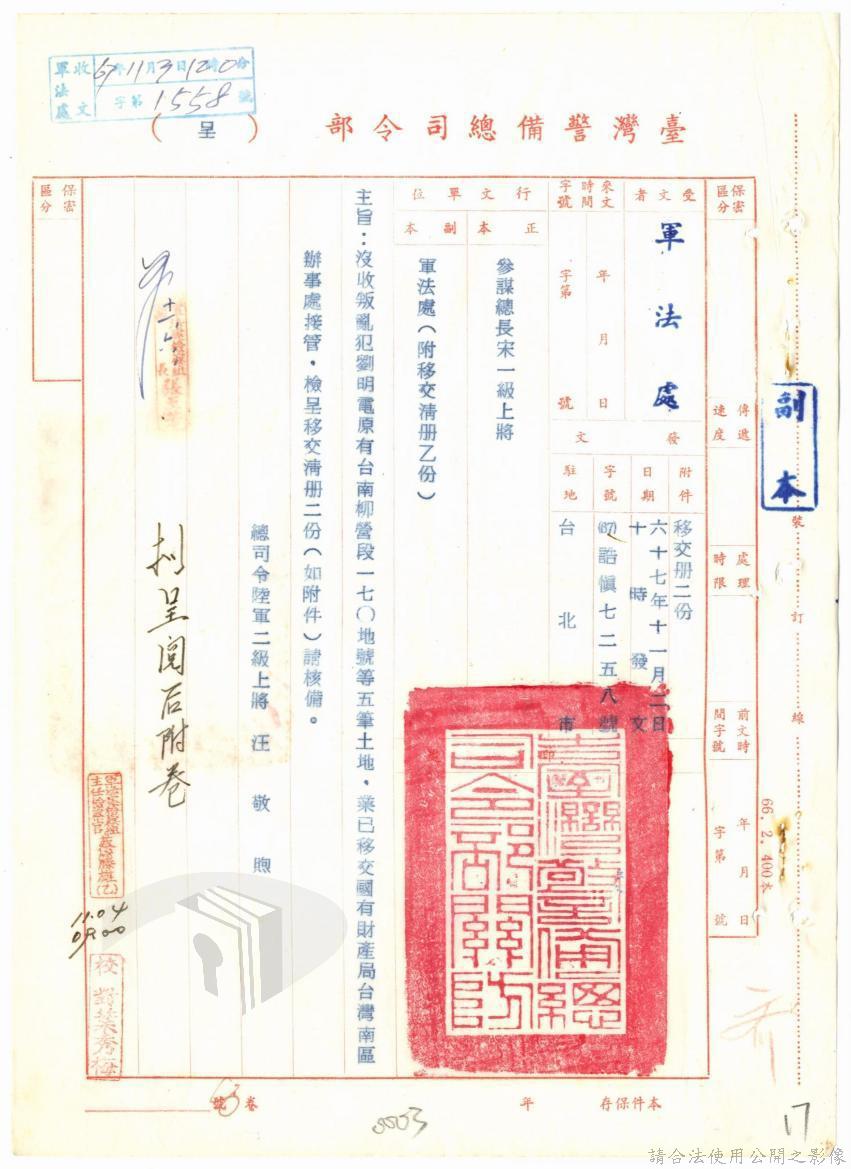 收文
軍法處
67年11月3日1200時分
字第1558號
臺灣警備總司令部(呈)
副本
保密區分
傳遞速度
處理時限
前文時間字號
年月日
字第號
受文者
軍法處
來文
時間
字號
年月日
字第號
行文單位
正本
副本
參謀總長宋一級上將
軍法處(附移交清册乙份)
發文
附件
移交册二份
日期
六十七年十一月二日
十時發文
字號
(67)誥愼七二五八號
駐地
台北市
印
臺灣警備總司令部關防
主旨:沒收叛亂犯劉明電原有台南柳營段一七〇地號等五筆土地,業已移交國有財產局台灣南區
辦事處接管,檢呈移交清册二份(如附件)請核備。
總司令陸軍二級上將汪敬煦
保密區分
十一、六
擬呈閱后附卷
11.04
0900
校對梁秀梅
裝訂線
66.2.400本
本件保存年
卷號
63
0003
17
請合法使用公開之影像